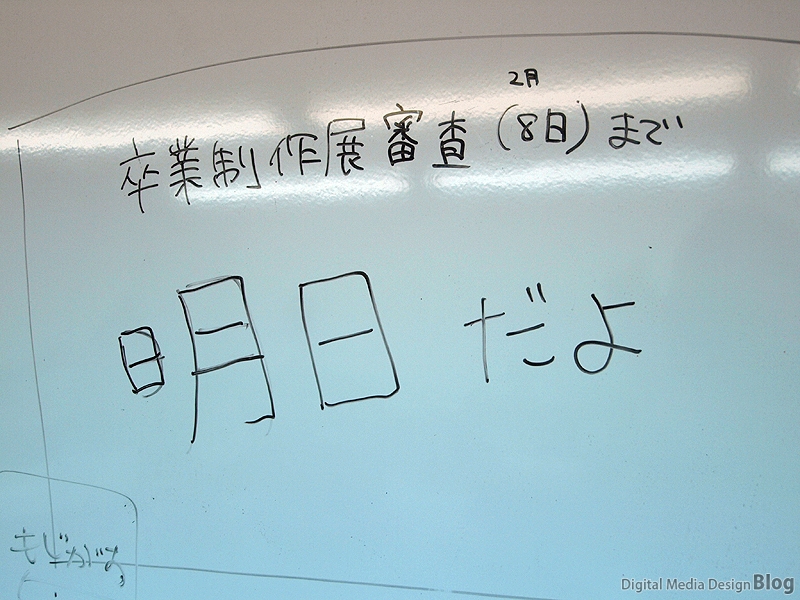 2月
卒業制作展審査(8日)まで
明日だよ
Digital Media Design Blog